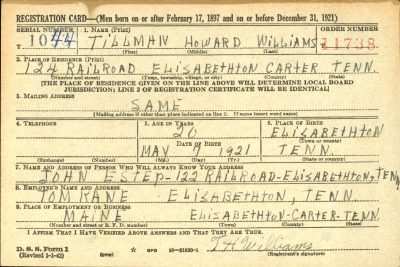 REGISTRATION CARD—(Men born on or after February 17, 1897 and on or before December 31, 1921)
SERIAL NUMBER 1. NAME (Print) ORDER NUMBER
T 1044 TILLMAN HOWARD WILLIAMS 11738
(First) (Middle) (Last)
2. PLACE OF RESIDENCE (Print)
124 RAILROAD ELISABETHTON CARTER TENN.
(Number and street) (Town, township, village, or city) (County) (State)
[THE PLACE OF RESIDENCE GIVEN ON THE LINE ABOVE WILL DETERMINE LOCAL BOARD
JURISDICTION; LINE 2 OF REGISTRATION CERTIFICATE WILL BE IDENTICAL]
3. MAILING ADDRESS
SAME
[Mailing address if other than place indicated on line 2. If same insert word same]
4. TELEPHONE 5. AGE IN YEARS 6. PLACE OF BIRTH
20 ELISABETHTON
DATE OF BIRTH (Town or county)
MAY 17 1921 TENN.
(Exchange) (Number) (Mo.) (Day) (Yr.) (State or country)
7. NAME AND ADDRESS OF PERSON WHO WILL ALWAYS KNOW YOUR ADDRESS
JOHN ESTEP-122 RAILROAD-ELISABETHTON, TENN
8. EMPLOYER'S NAME AND ADDRESS
TOM KANE ELISABETHTON, TENN.
9. PLACE OF EMPLOYMENT OR BUSINESS
MAINE ELISABETHTON-CARTER-TENN.
(Number and street or R. F. D. number) (Town) (County) (State)
I AFFIRM THAT I HAVE VERIFIED ABOVE ANSWERS AND THAT THEY ARE TRUE.
D. S. S. Form 1 T.H. Williams
(Revised 1-1-42) (over) GPO 16-21630-1 (Registrant's signature)